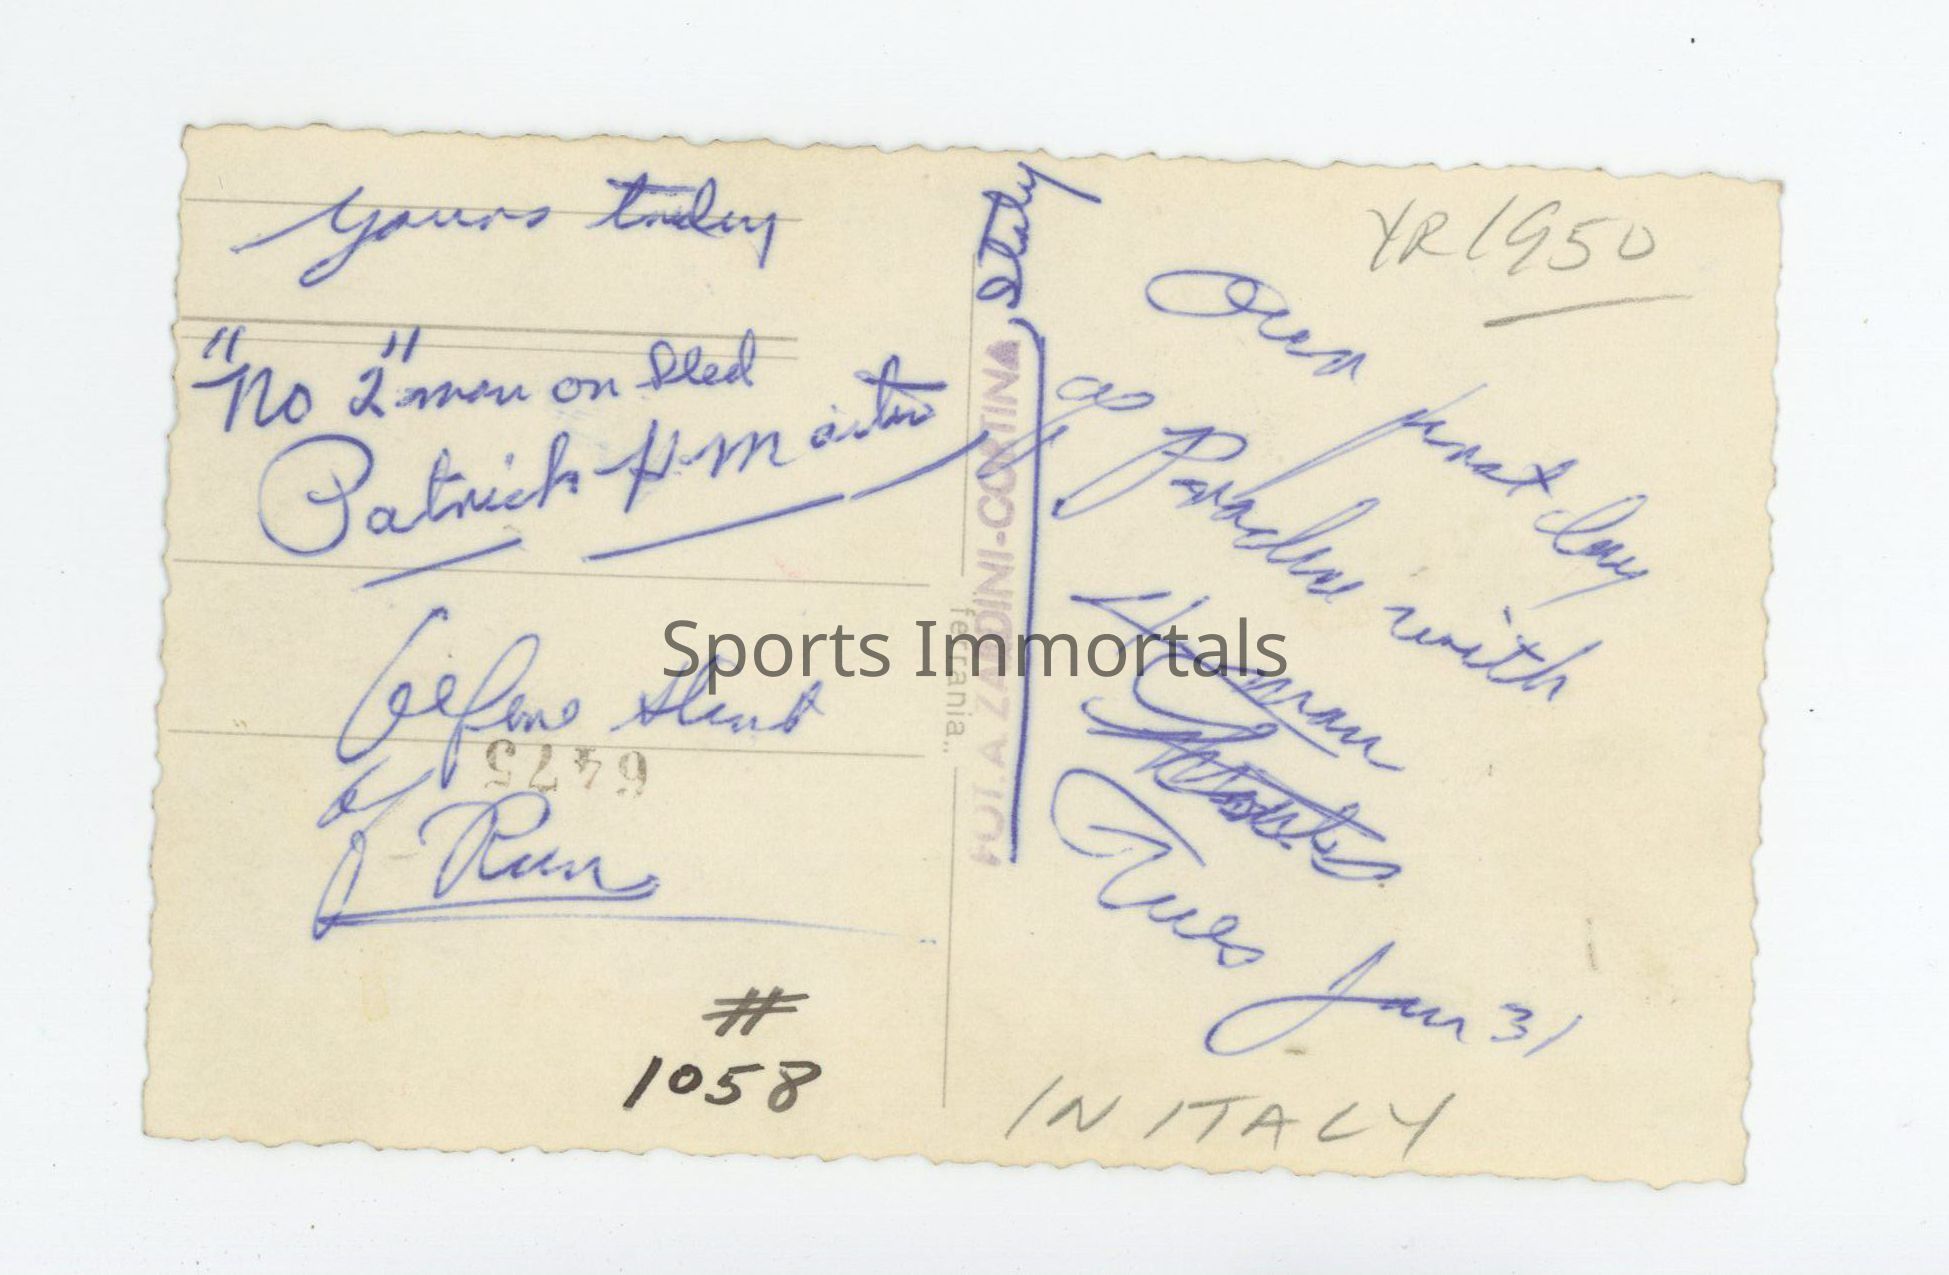 yours truly
"No 2" man on sled
Patrick H. Martin
before start
of
Run
6475
#
1058
Italy
FOT. A. ZARDINI-CORTINA
ferrania
YR 1950
Our first day
of Paradise with
Tues Jan 31
IN ITALY
Sports Immortals